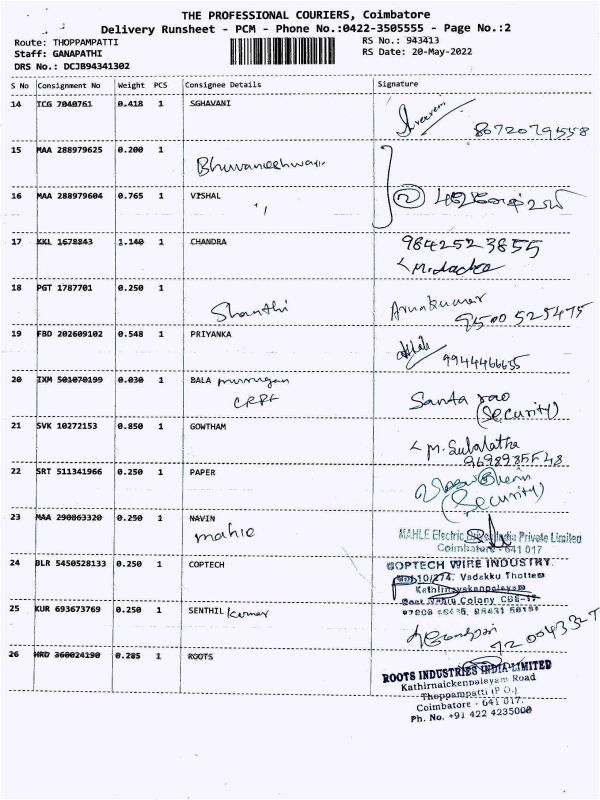 THE PROFESSIONAL COURIERS, Coimbatore
Delivery Runsheet - PCM - Phone No.:0422-3505555 - Page No.:2
Route: THOPPAMPATTI RS No.: 943413
Staff: GANAPATHI RS Date: 20-May-2022
DRS No.: DCJB94341302
S No Consignment No Weight PCS Consignee Details Signature
14 TCG 7040761 0.418 1 SGHAVANI
8072079558
15 MAA 288979625 0.200 1
Bhuvaneshwari
16 MAA 288979604 0.765 1 VISHAL
17 KKL 1678843 1.140 1 CHANDRA 9842523855
18 PGT 1787701 0.250 1
Shanthi Arunkumar
9500525475
19 FBD 202609102 0.548 1 PRIYANKA
9944466655
20 IXM 501070199 0.030 1 BALA murugan
CRPF Santa rao
(Security)
21 SVK 10272153 0.850 1 GOWTHAM
M. Sulalatha
9698935548
22 SRT 511341966 0.250 1 PAPER
(Security)
23 MAA 290863320 0.250 1 NAVIN
mahle MAHLE Electric India Private Limited
Coimbatore - 641 017
24 BLR 5450528133 0.250 1 COPTECH COPTECH WIRE INDUSTRY
10/274. Vadakku Thottam
Kathirnayakenpalayam
25 KUR 693673769 0.250 1 SENTHIL kumar
26 HRD 360024190 0.285 1 ROOTS
ROOTS INDUSTRIES INDIA LIMITED
Kathirnaickenpalayam Road
Thoppampatti (P.O.)
Coimbatore - 641 017.
Ph. No. +91 422 4235000